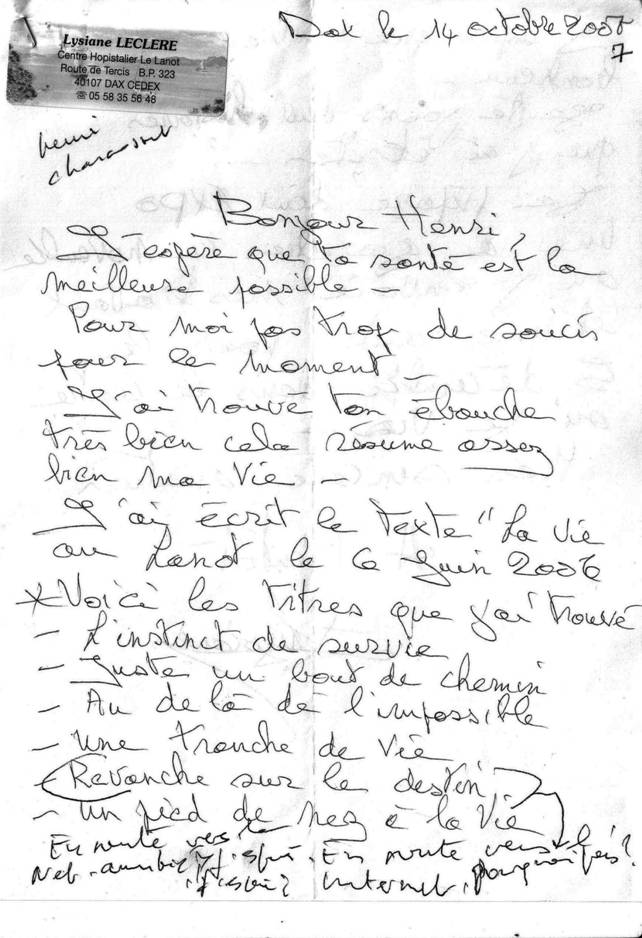 Lysiane LECLERE
Centre Hopistalier Le Lanot
Route de Tercis B.P. 323
40107 DAX CEDEX
☎ 05 58 35 56 48
Dax le 14 octobre 2007
7
henri
Bonjour Henri,
J'espère que ta santé est la
meilleure possible -
Pour moi pas trop de soucis
pour le moment
J'ai trouvé ton ébauche
très bien cela résume assez
bien ma vie -
J'ai écrit le texte "La vie
au Lanot le 6 juin 2006
* Voici les titres que j'ai trouvé
- L'instinct de survie
- Juste un bout de chemin
- Au de là de l'impossible
- Une tranche de vie
- Revanche sur le destin
- Un pied de nez à la vie
En route vers le
Net. En route vers
internet. pourquoi pas?